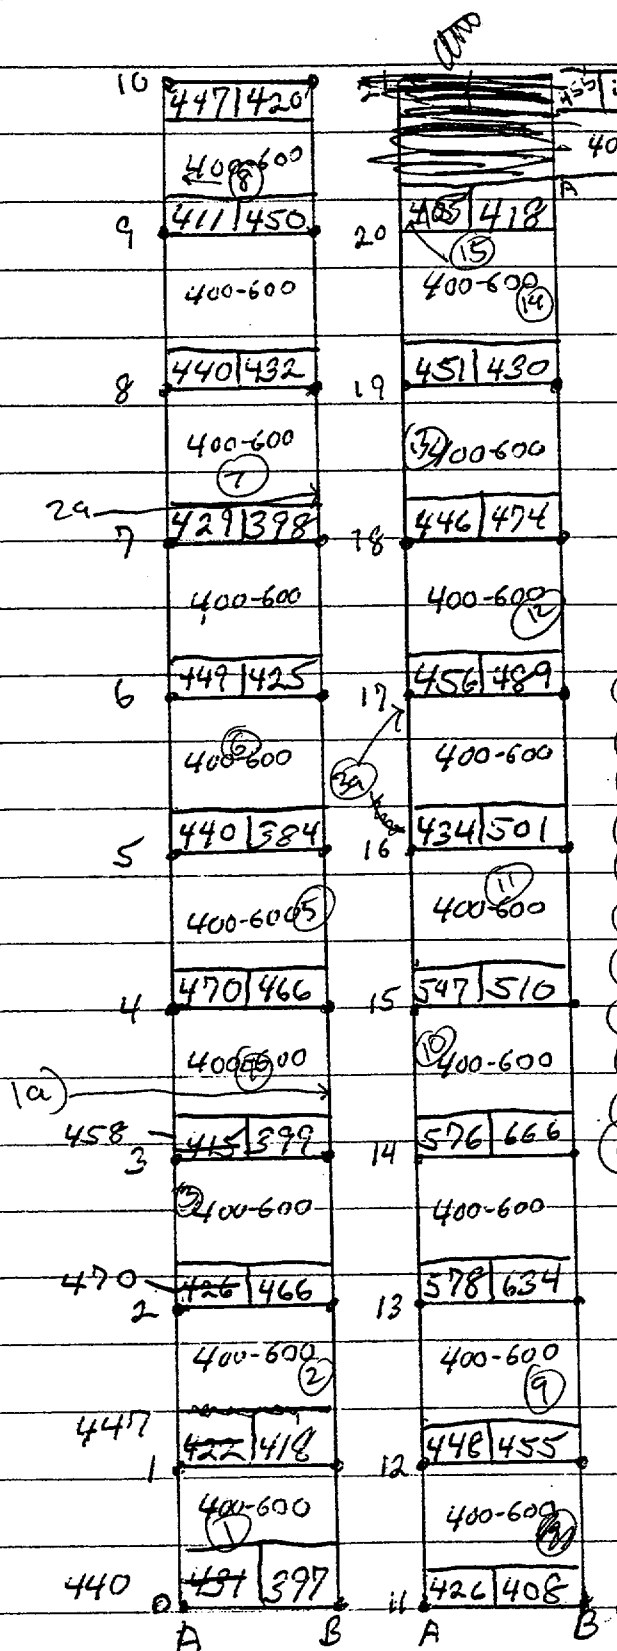 10
447|420
400-600
8
9 411|450
400-600
8 440|432
400-600
7
2a
7 429|398
400-600
6 449|425
400-600
6
5 440|384
400-600 5
4 470|466
400-600
1a)
458 415|399
3
3 400-600
470 426|466
2
400-600
2
447 422|418
1
400-600
1
440 397
0
A B
455
40
A
20 418
15
400-600
14
19 451|430
400-600
18 446|474
400-600
12
17 456|489
400-600
3a
16 434|501
11
400-600
15 547|510
10
400-600
14 576|666
400-600
13 578|634
400-600
9
12 448|455
400-600
11 426|408
A B